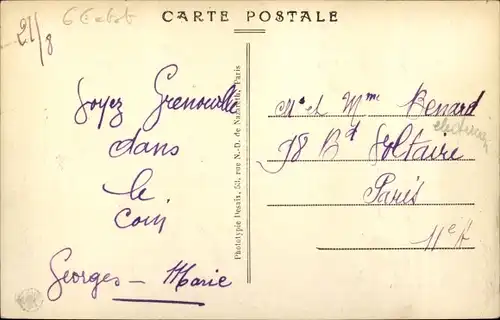 CARTE POSTALE
21/8
Soyez Grenouille
dans
le
coin
Georges - Marie
Phototypie Desaix, 53, rue N.-D. de Nazareth, Paris
Mr et Mme Benard
98 Bd Voltaire
Paris
11e A